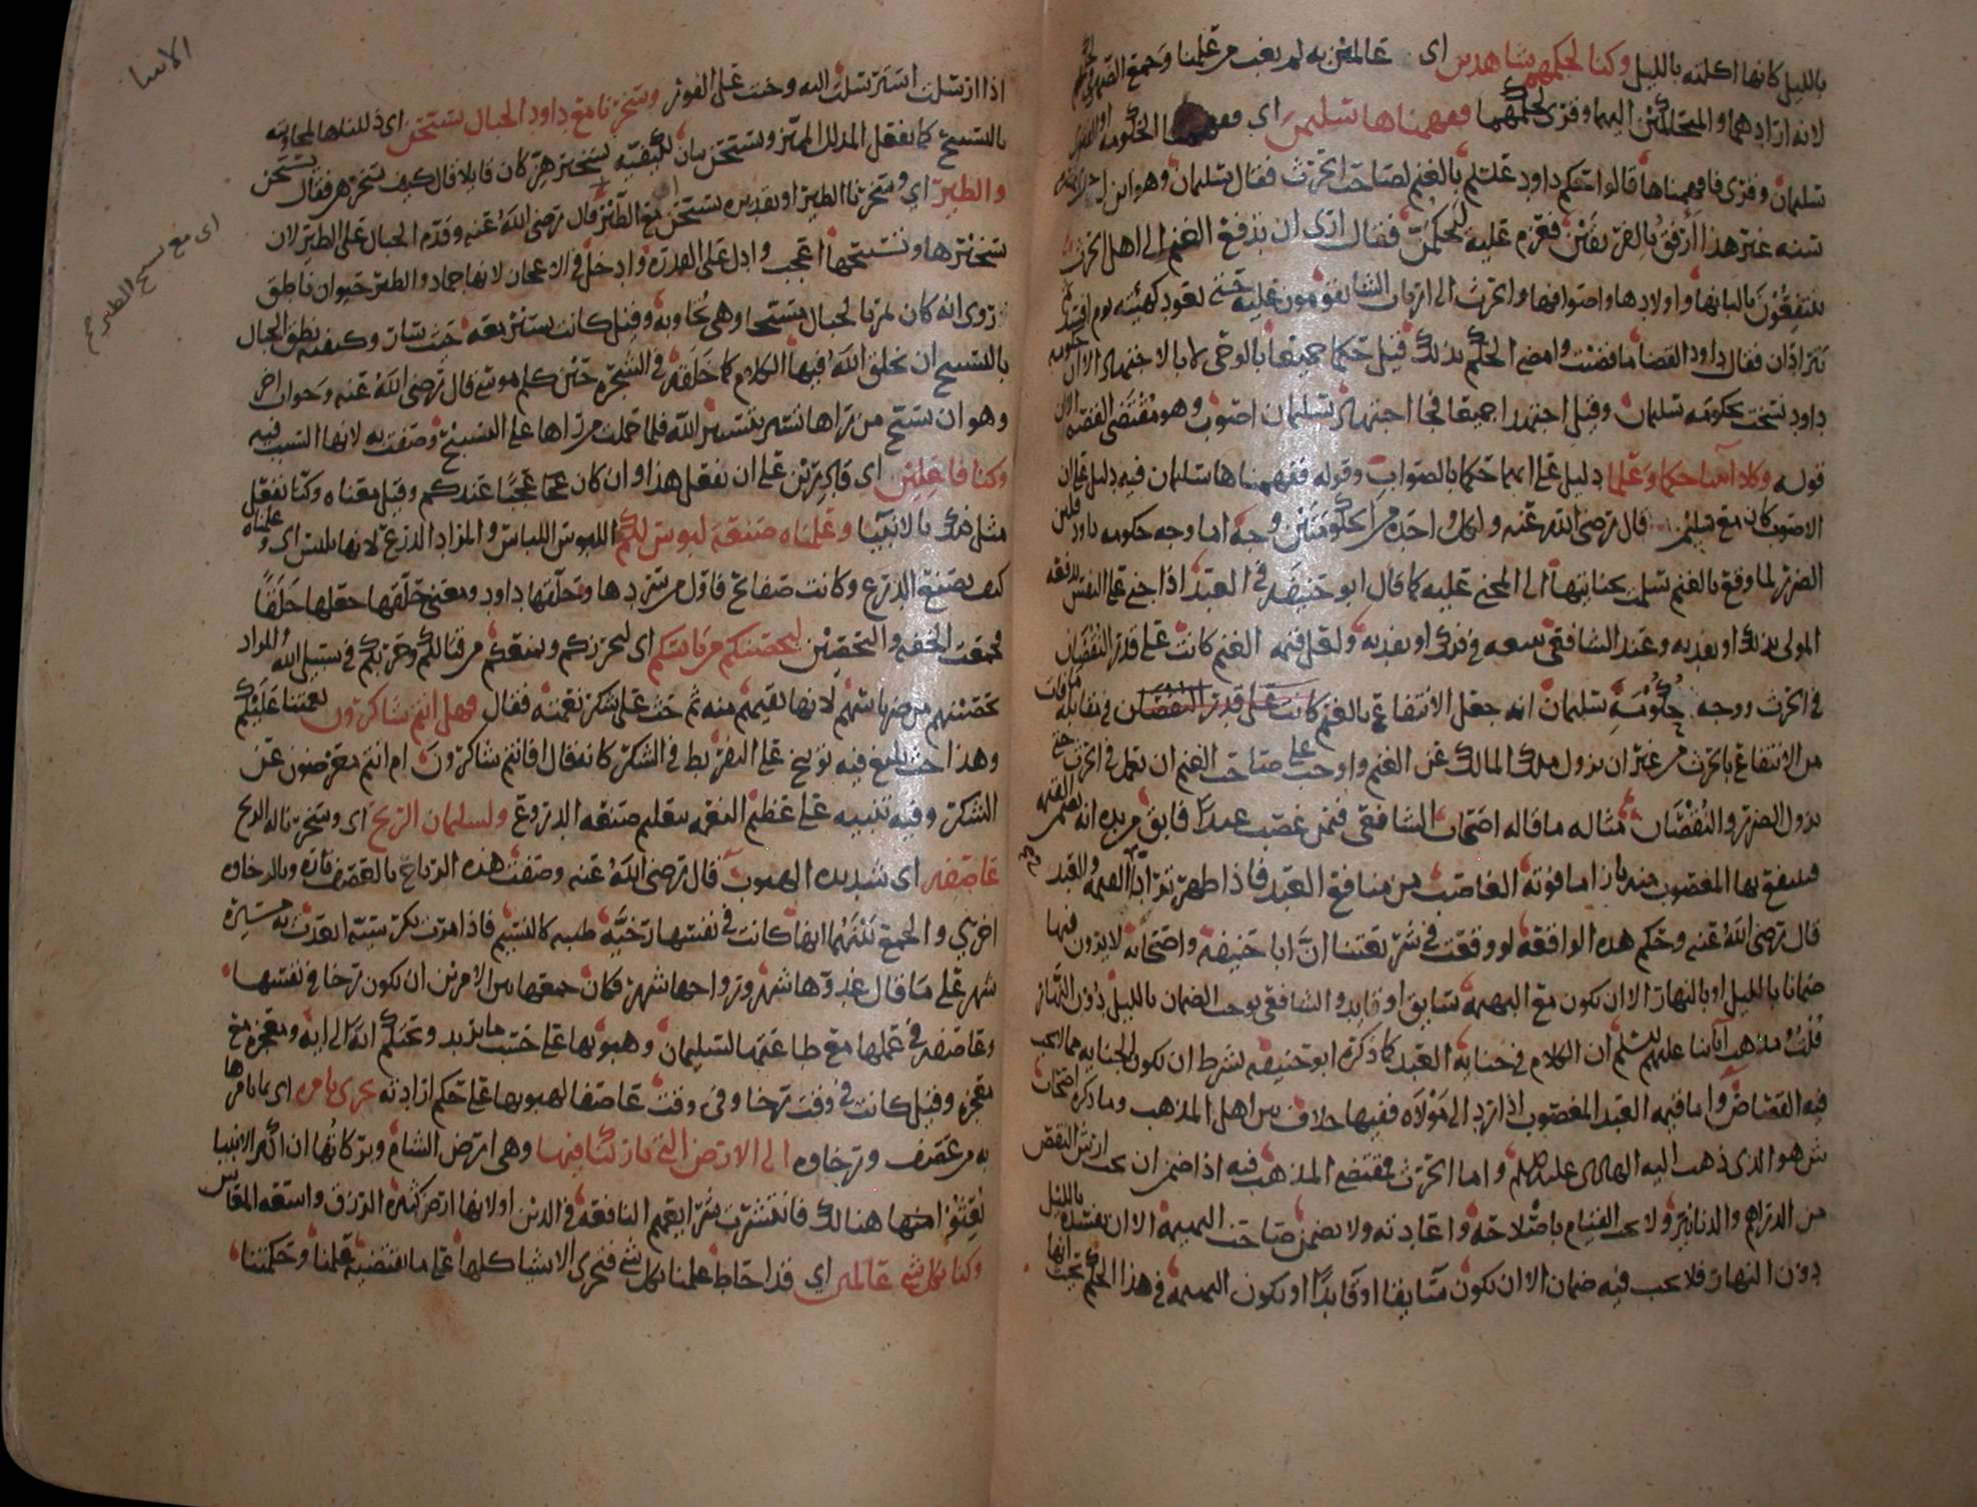 بالليل كانها اكلته بالليل وكنا لحكمهم شاهدين اى عالمين به لم يغب من علمنا وجمع الضمير
لانه ارادهما والمتحاكمين اليهما وقرى لحكمهما ففهمناها سليمن اي الحكومه او الفتوى
سليمان وقرى فافهمناها قالوا حكم داود عليلم بالغنم لصاحب الحرث فقال سليمان وهو ابن احدى عشره
سنه غير هذا ارفق بالفريقين فعزم عليه ليحكمن فقال ارى ان تدفع الغنم الى اهل الحرث
ينتفعون بالبانها واولادها واصوافها والحرث الى ارباب الشا يقومون عليه حتى يعود كهيئته يوم افسد
يترادان فقال داود القضا ما قضيت وامضى الحكم بذلك قيل حكما جميعا بالوحى لا بالاجتهاد الا ان حكومه
داود نسخت بحكومه سليمان وقيل اجتهدا جميعا فجا اجتهاد سليمان اصوب وهو مقتضى القصه لان
قوله وكلا آتينا حكما وعلما دليل على انهما حكما بالصواب وقوله ففهمناها سليمان فيه دليل على ان
الاصوب كان مع سليمن قال رضى الله عنه ولكل واحده من الحكومتين وجه اما وجه حكومه داود فلان
الضرر لما وقع بالغنم سلمت بجنايتها الى المجني عليه كما قال ابو حنيفه في العبد اذا جنى على النفس يدفعه
المولى بذلك او يفديه وعند الشافعي يبيعه في ذلك او يفديه ولعل قيمه الغنم كانت على قدر النقصان
في الحرث ووجه حكومة سليمان انه جعل الانتفاع بالغنم كانت على قدر النقصان في مقابله ما فات
من الانتفاع بالحرث من غير ان يزول ملك المالك عن الغنم واوجب على صاحب الغنم ان يعمل في الحرث حتى
يزول الضرر والنقصان مثاله ما قاله اصحاب الشافعي فيمن غصب عبدا فابق من يده انه يضمن القيمه
فينتفع بها المغصوب منه بازا ما فوته الغاصب من منافع العبد فاذا ظهر ترادا القيمه والعبد
قال رضى الله عنه وحكم هذه الواقعه لو وقعت في شريعتنا ان ابا حنيفه واصحابه لا يرون فيها
ضمانا بالليل او بالنهار الا ان يكون مع البهيمه سايق او قايد والشافعي يوجب الضمان بالليل دون النهار
قلت ومذهب آبائنا عليهم السلم ان الكلام في جنايه العبد كما ذكره ابو حنيفه بشرط ان تكون الجنايه مما لا يجب
فيه القصاص واما قيمه العبد المغصوب اذا رد الى مولاه ففيها خلاف بين اهل المذهب وما ذكره اصحاب
ش هو الذى ذهب اليه الهادى عليلم واما الحرث فمقتضى المذهب فيه اذا ضمن ان يجب ارش النقص
من الدراهم والدنانير ولا يجب القيام باصلاحه واعادته ولا يضمن صاحب البهيمه الا ان تفسده بالليل
دون النهار فلا يجب فيه ضمان الا ان يكون سايقا او قايدا او يكون البهيمه في هذا الحكم
الانبيا
اذا ارسلت استرسلت اليه وحث على الفوز وسخرنا مع داود الجبال يسبحن اى ذللناها لمجاوبته
بالتسبيح كما يفعل المذلل المميز ويسبحن بيان لكيفيه تسخيرهن كان قايلا قال كيف سخرهن فقال يسبحن
والطير اي وسخرنا الطير او تقديره يسبحن مع الطير قال رضى الله عنه وقدم الجبال على الطير لان
تسخيرها وتسبيحها اعجب وادل على القدره وادخل في الاعجاز لانها جماد والطير حيوان ناطق
روى انه كان يمر بالجبال مسبحا وهى تجاوبه وقيل كانت تسير معه حيث سار وكيفيه نطق الجبال
بالتسبيح ان يخلق الله فيها الكلام كما خلقه في الشجره حين كلم موسى قال رضى الله عنه وجواب اخر
وهو ان يسبح من رآها تسير بتسيير الله فلما حملت من رآها على التسبيح وصفت به لانها السبب فيه
وكنا فاعلين اى قادرين على ان نفعل هذا وان كان عجبا عندكم وقيل معناه وكنا نفعل
مثل ذلك بالانبيا وعلمناه صنعة لبوس لكم اللبوس اللباس والمراد الدرع لانها تلبس اى وعلمناه
كيف يصنع الدرع وكانت صفائح فاول من سردها وحلقها داود ومعنى حلقها جعلها حلقا
فجمعت الخفه والتحصين لتحصنكم من باسكم اى ليحرزكم ويمنعكم من قتالكم وحربكم في سبيل الله والمراد
تحصينهم من ضر باسهم لانها تقيهم منه ثم حث على شكر نعمته فقال فهل انتم شاكرون نعمتنا عليكم
وهذا حث بليغ فيه توبيخ على التفريط في الشكر كانه قال افانتم شاكرون ام انتم معرضون عن
الشكر وفيه تنبيه على عظيم النعمه بتعليم صنعه الدروع ولسليمان الريح اى وسخرنا له الريح
عاصفه اى شديده الهبوب قال رضى الله عنه وصفت هذه الرياح بالعصف تاره وبالرخاوه
اخرى والجمع بينهما انها كانت في نفسها رخيه طيبه كالنسيم فاذا مرت بكرسيه ابعدت به مسيره
شهر على ما قال غدوها شهر ورواحها شهر فكان جمعها بين الامرين ان تكون رخا في نفسها
وعاصفه في عملها مع طاعتها لسليمان وهبوبها على حسب ما يريد ويحتكم آيه الى آيه ومعجزه مع
معجزه وقيل كانت في وقت رخا وفي وقت عاصفا لهبوبها على حكم ارادته تجرى بامره اى بما يامرها
به من عصف ورخاوه الى الارض التى باركنا فيها وهى ارض الشام وبركاتها ان اكثر الانبيا
بعثوا منها هنالك فانتشرت شرايعهم النافعه في الدين او لانها ارض كثيره الرزق واسعه المعاش
وكنا بكل شى عالمين اي قد احاط علمنا بكل شى فنجرى الاشيا كلها على ما يقتضيه علمنا وحكمتنا
اى مع تسبيح الطير